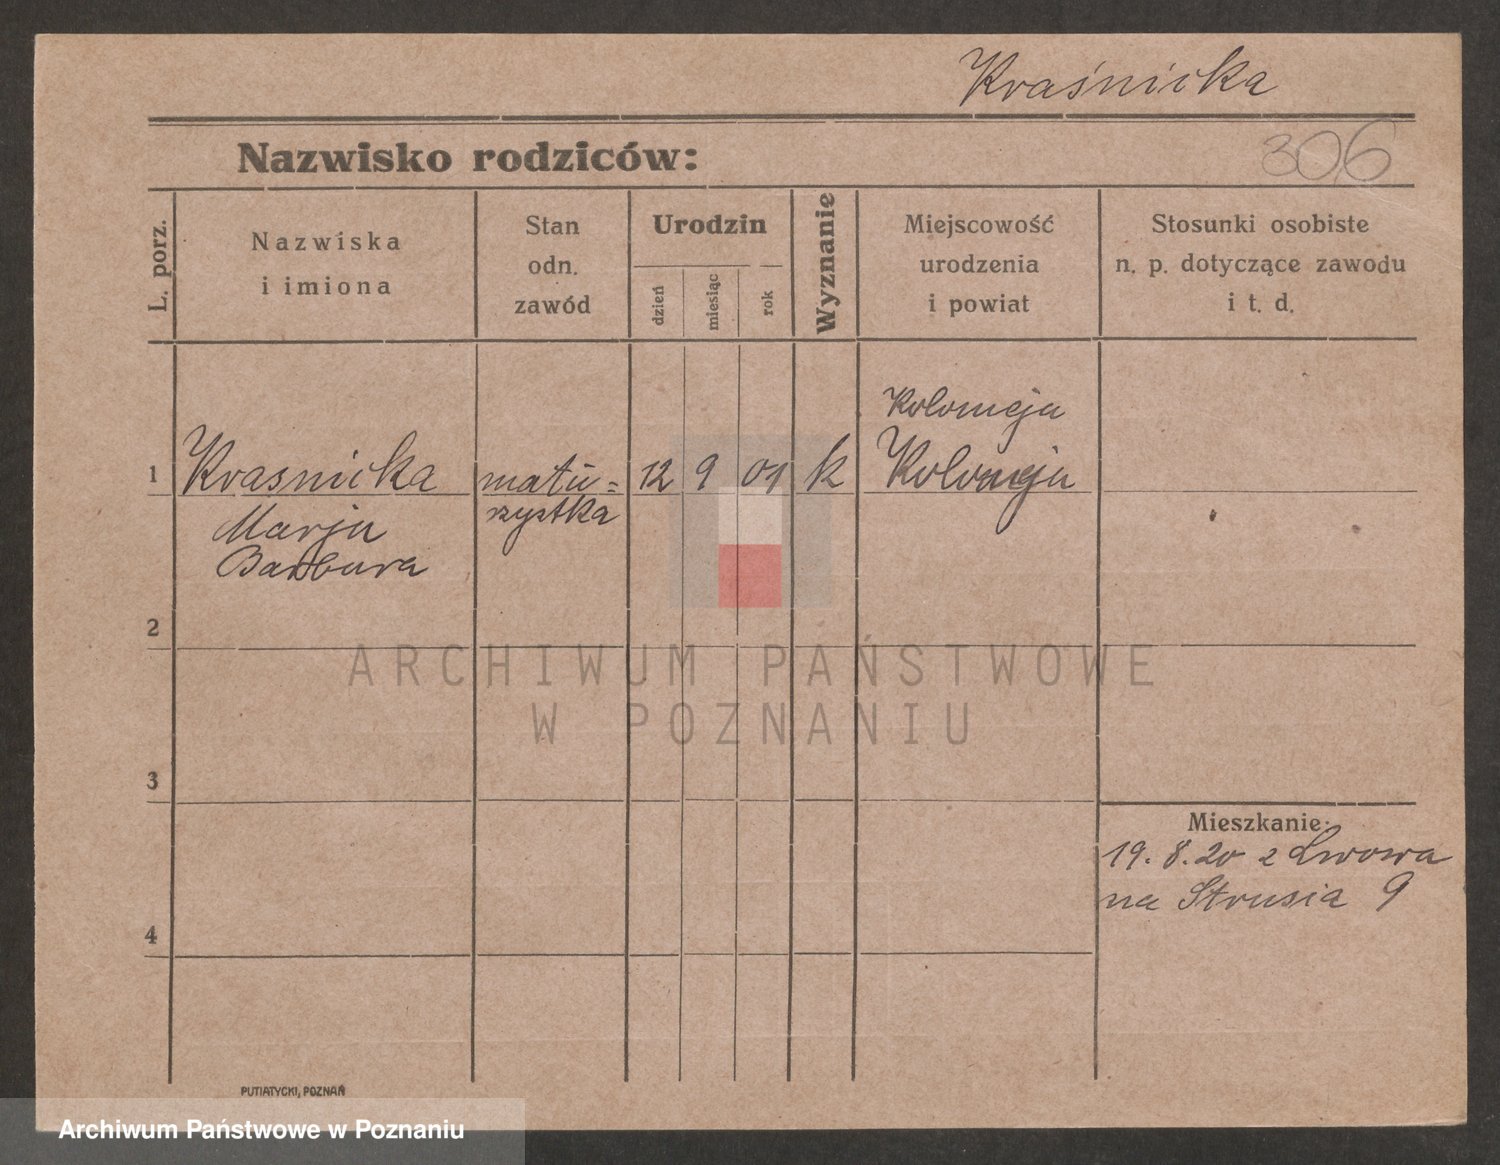 Kraśnicka
306
Nazwisko rodziców:
L. porz.
Nazwiska
i imiona
Stan
odn.
zawód
Urodzin
dzień
miesiąc
rok
Wyznanie
Miejscowość
urodzenia
i powiat
Stosunki osobiste
n. p. dotyczące zawodu
i t. d.
Kolomeja
1 Krasnicka matu= 12 9 01 k Kolomeja
rzystka
Marja
Barbara
2
ARCHIWUM PAŃSTWOWE
W POZNANIU
3
Mieszkanie:
19. 8. 20 z Lwowa
na Strusia 9
4
PUTIATYCKI, POZNAŃ
Archiwum Państwowe w Poznaniu